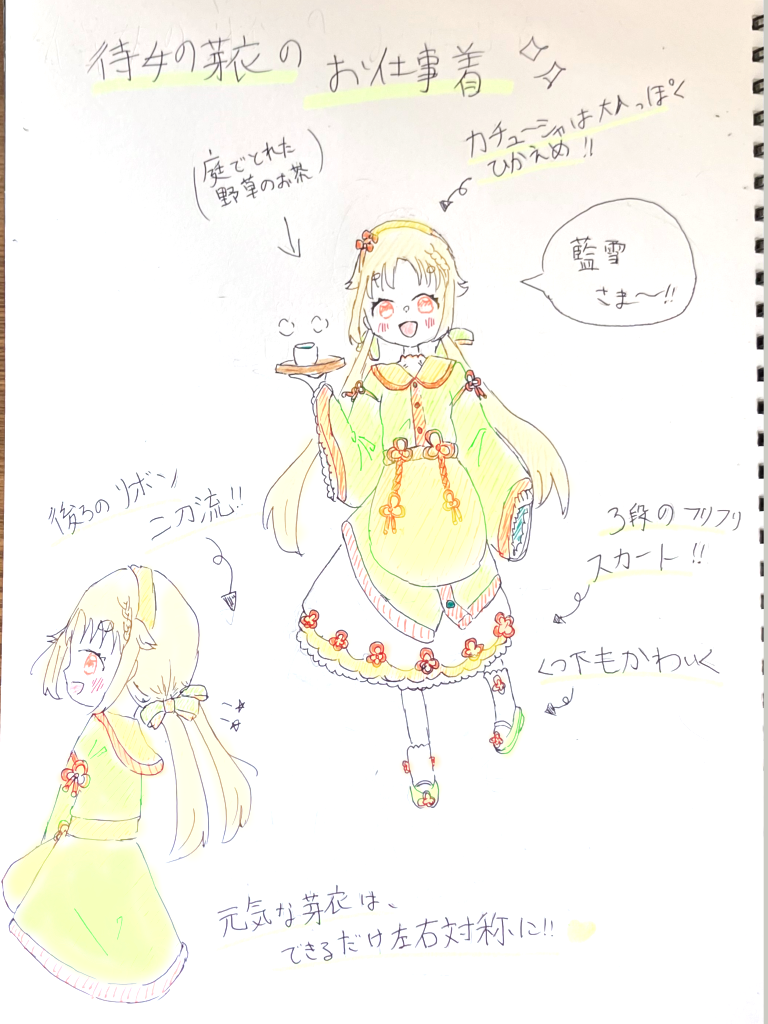 侍女の芽衣の お仕事着
カチューシャは大人っぽく
ひかえめ!!
(庭でとれた
野草のお茶)
藍雪
さま〜!!
後ろのリボン
二刀流!!
3段のフリフリ
スカート!!
くつ下もかわいく
元気な芽衣は、
できるだけ左右対称に!!